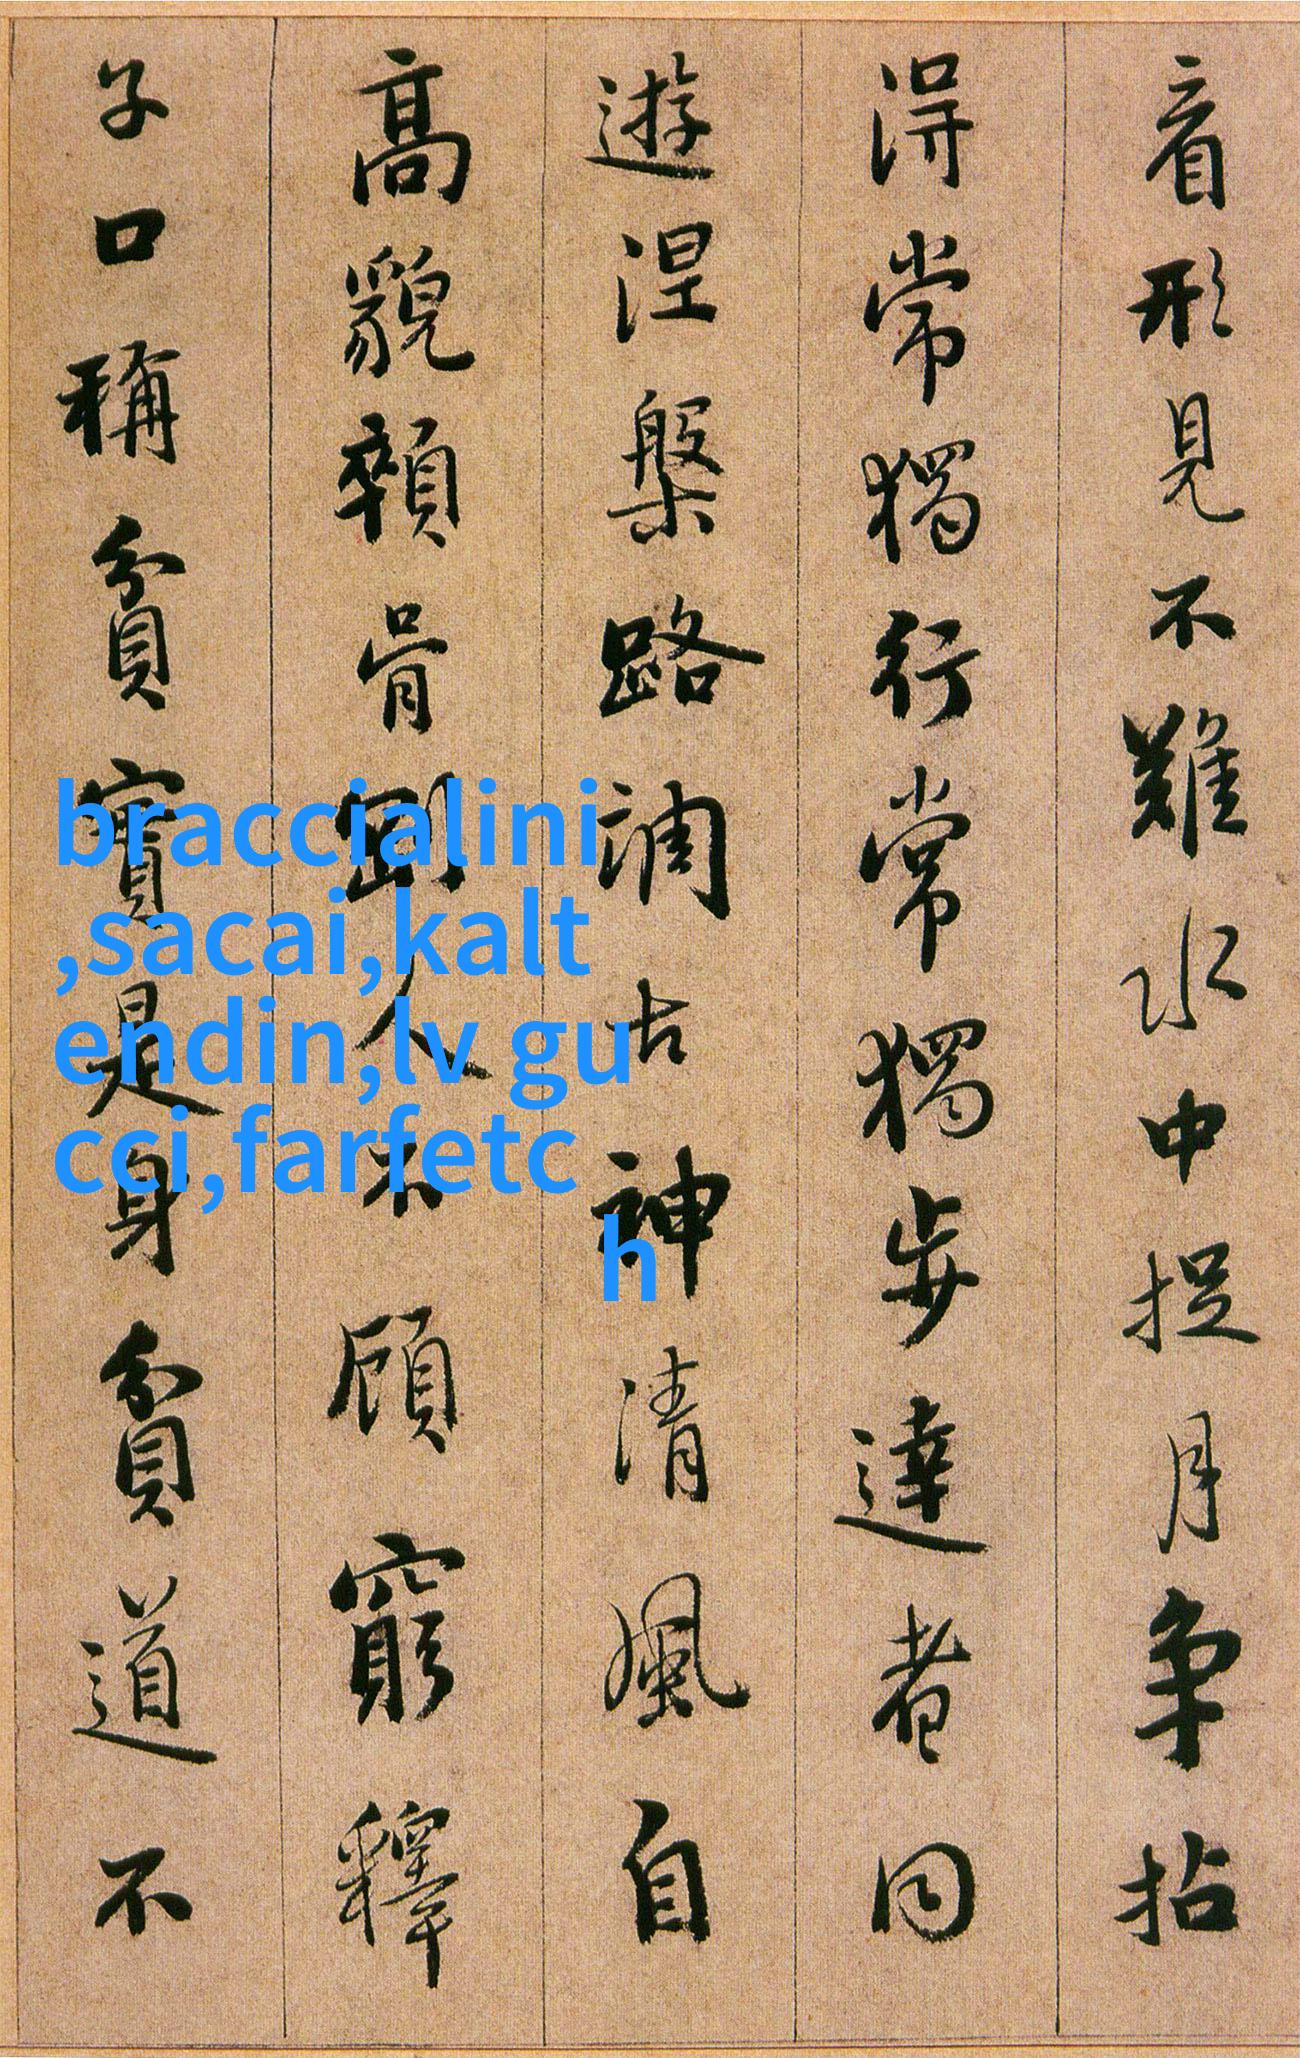 看形見不難水中捉月争拈
得常獨行常獨步達者同
遊涅槃路調古神清風自
高貌顇骨剛人不顧窮釋
子口稱貧實是身貧道不
braccialini
,sacai,kalt
endin,lv gu
cci,farfetc
h